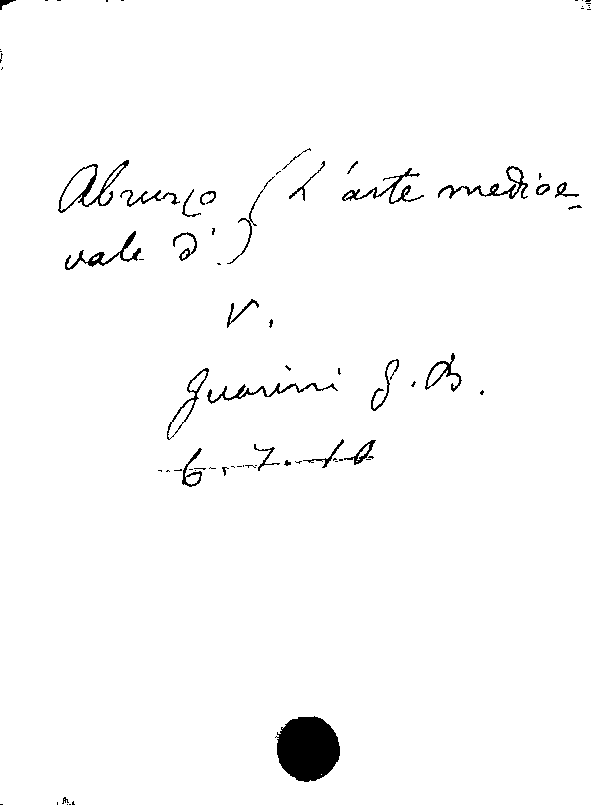 Abruzzo (L'arte medioe-
vale d')
V.
Guarini G. B.
6.7.10